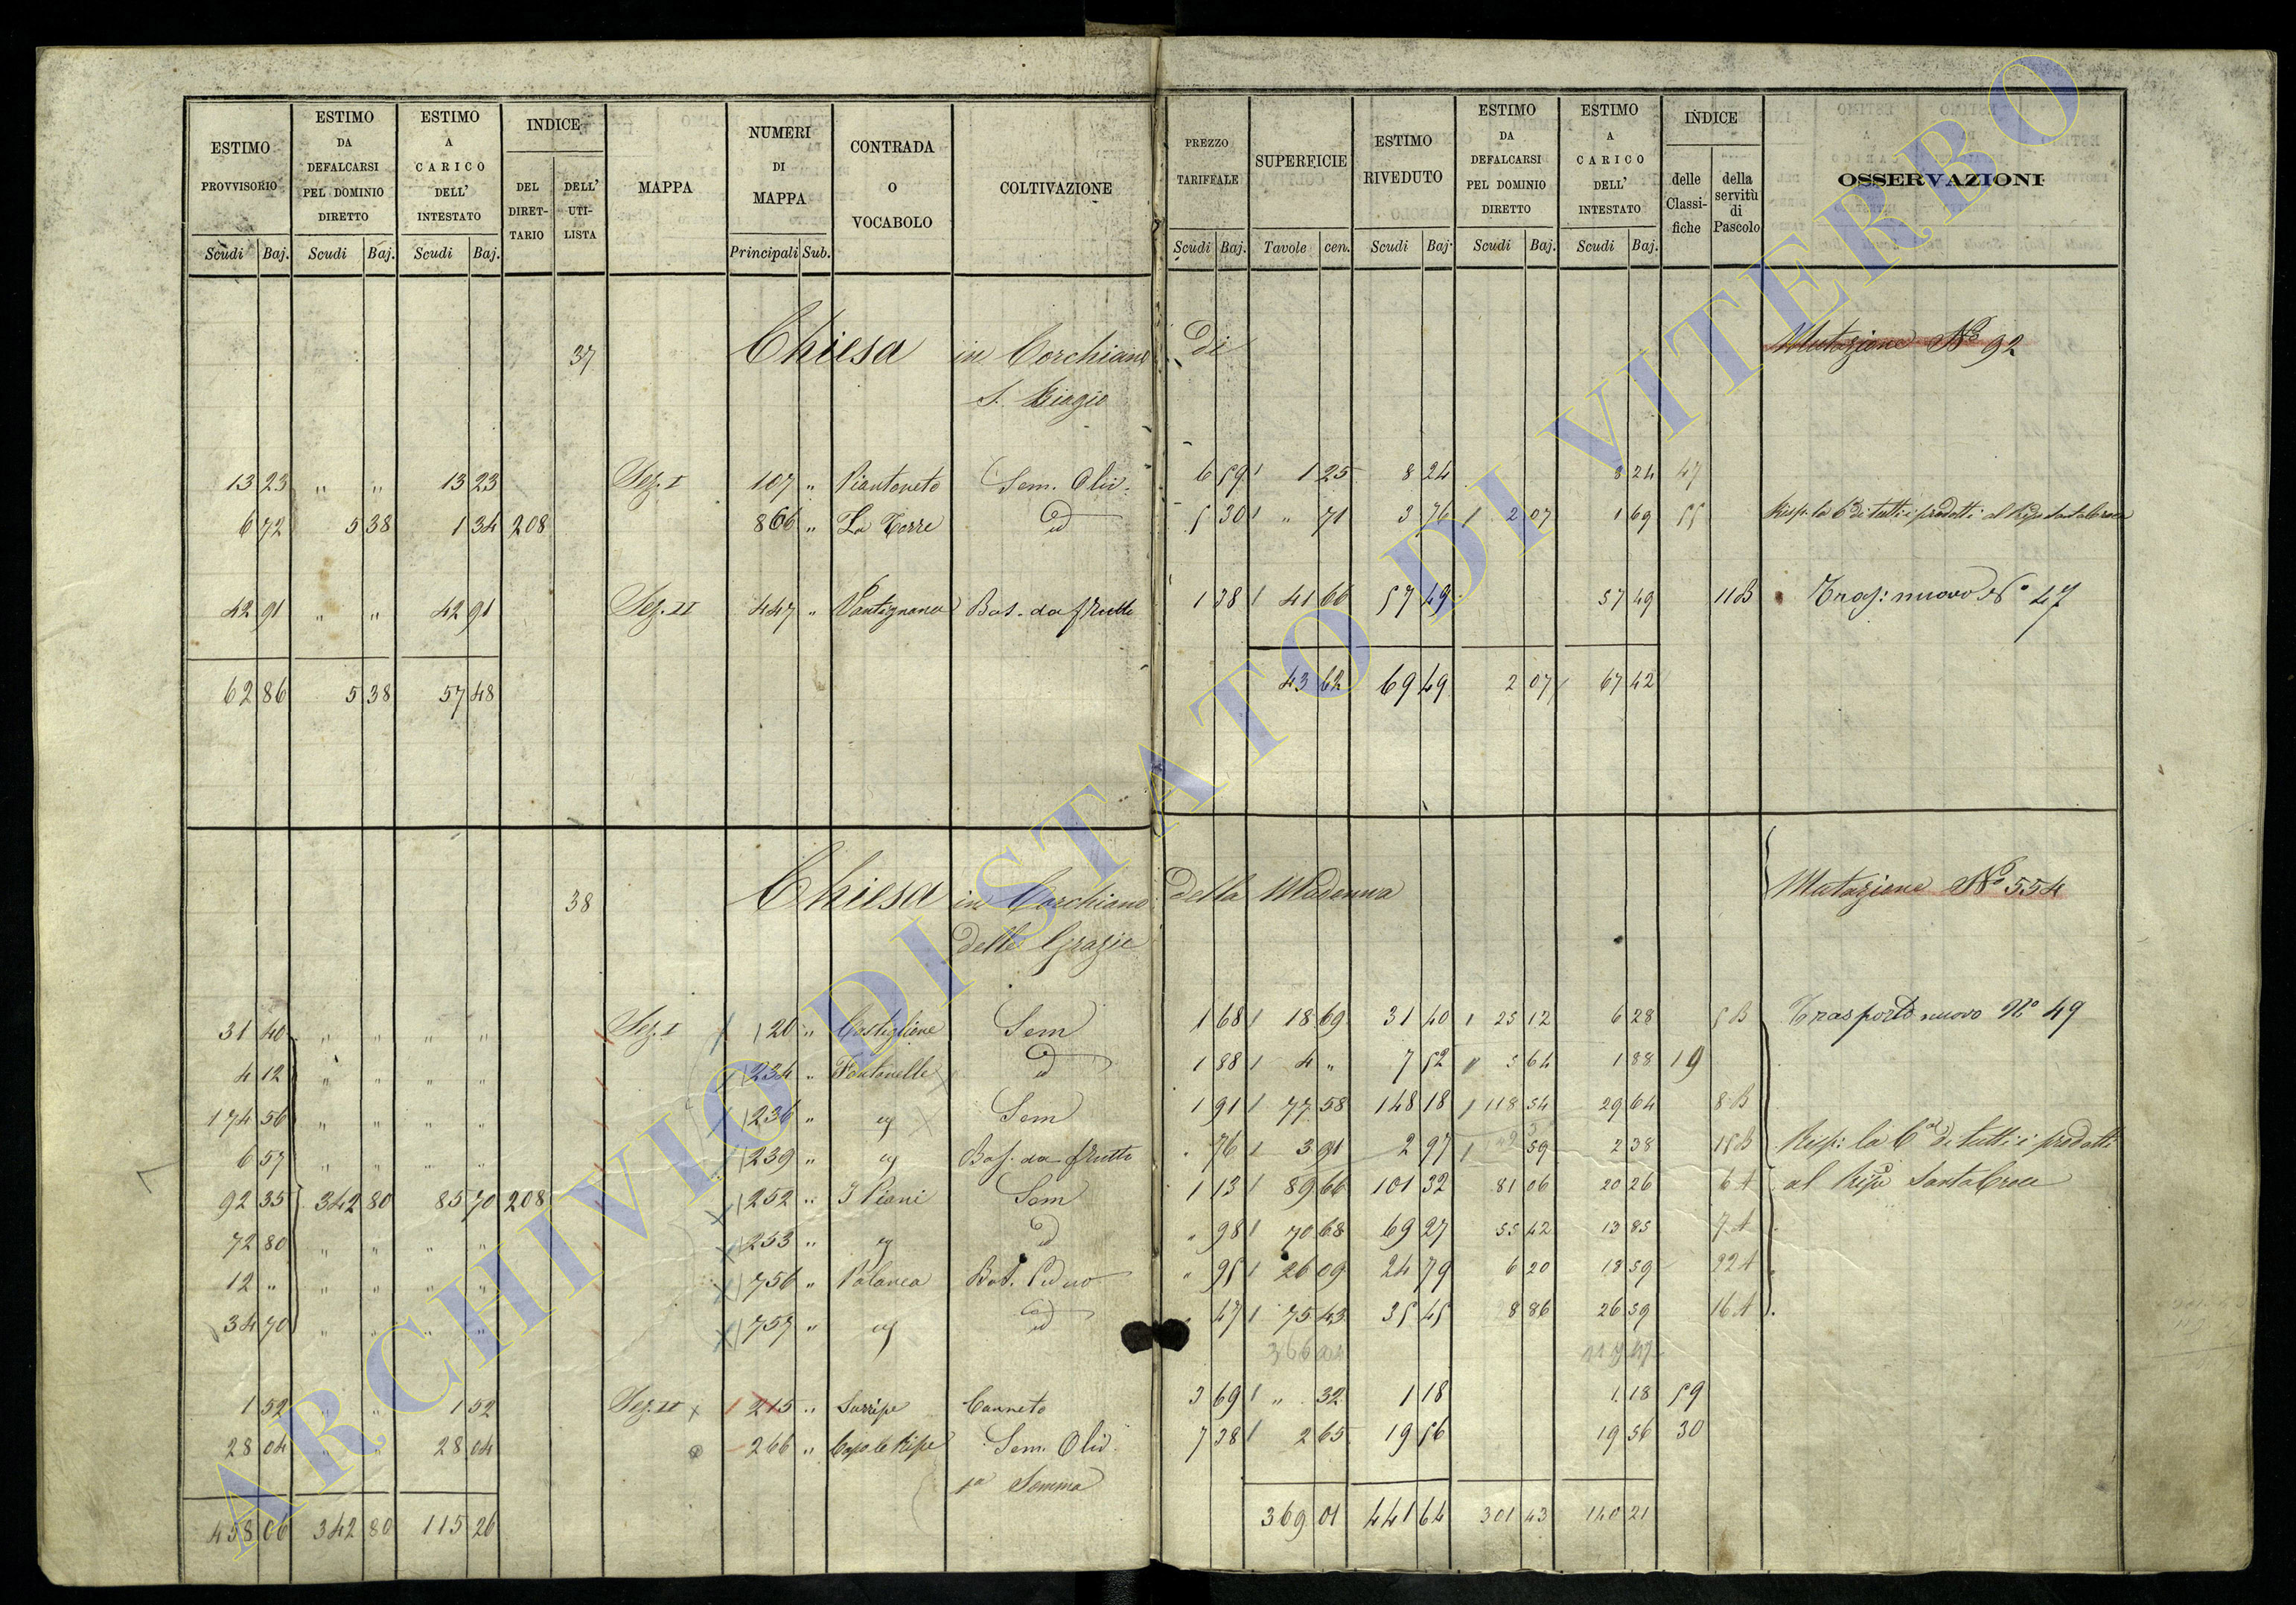 ESTIMO PROVVISORIO | ESTIMO DA DEFALCARSI PEL DOMINIO DIRETTO | ESTIMO A CARICO DELL' INTESTATO | INDICE | MAPPA | NUMERI DI MAPPA | CONTRADA O VOCABOLO | COLTIVAZIONE | PREZZO TARIFFALE | SUPERFICIE | ESTIMO RIVEDUTO | ESTIMO DA DEFALCARSI PEL DOMINIO DIRETTO | ESTIMO A CARICO DELL' INTESTATO | INDICE | OSSERVAZIONI
DEL DIRETTARIO | DELL' UTILISTA | delle Classifiche | della servitù di Pascolo
Scudi | Baj. | Scudi | Baj. | Scudi | Baj. | Principali | Sub. | Scudi | Baj. | Tavole | cen. | Scudi | Baj. | Scudi | Baj. | Scudi | Baj.
37 Chiesa in Corchiano Di Mutazione N° 92
S. Biagio
13 23 " " 13 23 Sez. I 107 " Piantoneto Sem. Oliv. 6 59 1 25 8 24 8 24 47
6 72 5 38 1 34 208 866 " La Torre id 5 30 " 71 3 76 2 07 1 69 55 Risp. la 6a di tutti i prodotti al
42 91 " " 42 91 Sez. II 447 " Vantignano Bos. da frutto 1 38 41 66 57 49 57 49 11 B Trasp: nuovo N° 47
62 86 5 38 57 48 43 62 69 49 2 07 67 42
38 Chiesa in Corchiano della Madonna Mutazione N° 554
delle Grazie
31 40 " " " " Sez. I 20 " Castiglione Sem 1 68 18 69 31 40 25 12 6 28 5 B Trasporto nuovo N° 49
4 12 " " " " 234 " Fontanelle id 1 88 4 " 7 52 5 64 1 88 19
174 56 " " " " 236 " Sem 1 91 77 58 148 18 118 54 29 64 8 B
6 57 " " " " 239 " Bos. da frutto " 76 3 91 2 97 59 2 38 15 B Risp: la 6a di tutti i prodotti
92 35 342 80 85 70 208 252 " I Piani Sem 1 13 89 66 101 32 81 06 20 26 6 A al Santacroce
72 80 " " " " 253 " id " 98 70 68 69 27 55 42 13 85 7 A
12 " " " " " 756 " Palanca Bos. Ceduo " 95 26 09 24 79 6 20 18 59 22 A
34 70 " " " " 757 " id " 47 75 43 35 45 8 86 26 59 16 A
1 52 " " 1 52 Sez. II 215 " Surripe Canneto 3 69 " 32 1 18 1 18 59
28 04 " " 28 04 266 " Capo le Ripe Sem. Oliv. 7 38 2 65 19 56 19 56 30
1a Somma
458 06 342 80 115 26 369 01 441 64 301 43 140 21
ARCHIVIO DI STATO DI VITERBO